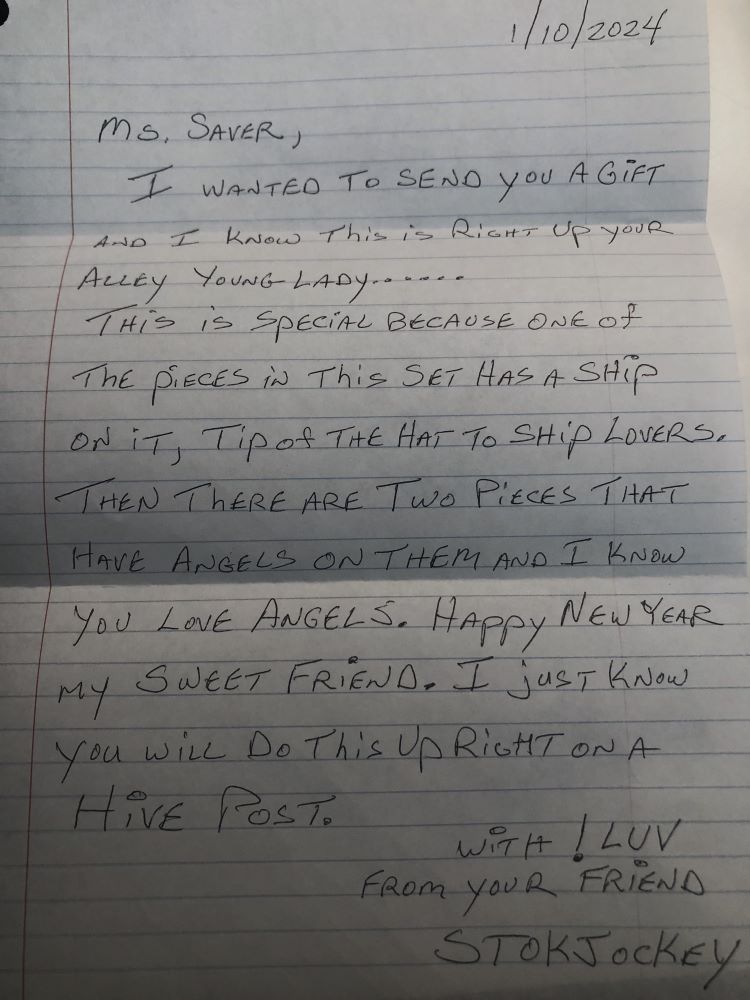 1/10/2024
Ms. SAVER,
I WANTED TO SEND YOU A GIFT
AND I KNOW THIS IS RIGHT UP YOUR
ALLEY YOUNG LADY.......
THIS IS SPECIAL BECAUSE ONE OF
THE PIECES IN THIS SET HAS A SHIP
ON IT, TIP OF THE HAT TO SHIP LOVERS.
THEN THERE ARE TWO PIECES THAT
HAVE ANGELS ON THEM AND I KNOW
YOU LOVE ANGELS. HAPPY NEW YEAR
MY SWEET FRIEND. I JUST KNOW
YOU WILL DO THIS UP RIGHT ON A
HIVE POST.
WITH !LUV
FROM YOUR FRIEND
STOKJOCKEY